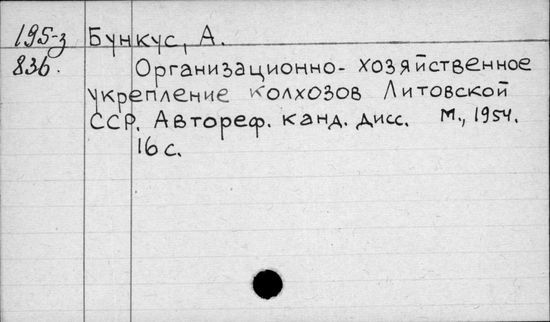 195-з Бункус, А.
836. Организационно-хозяйственное
укрепление колхозов Литовской
ССР. Автореф. канд. дисс. М., 1954.
16 с.